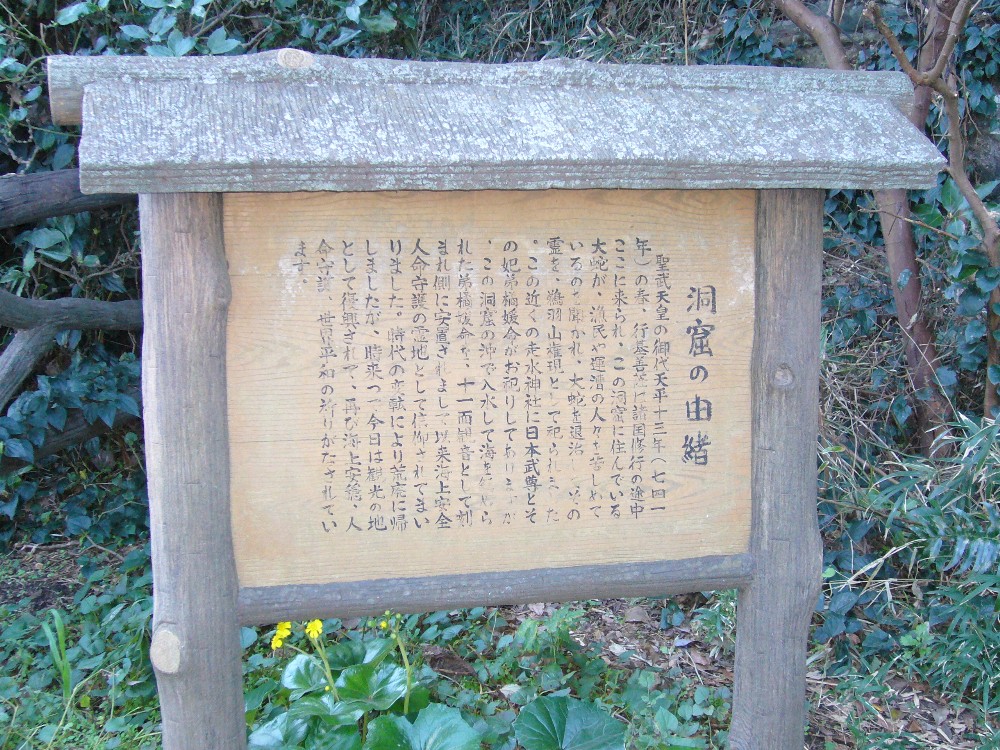 洞窟の由緒
聖武天皇の御代天平十三年(七四一
年)の春、行基菩薩は諸国修行の途中
ここに来られ、この洞窟に住んでいる
大蛇が、漁民や運漕の人々を苦しめて
いるのを聞かれ、大蛇を退治し、その
霊を、鵜羽山権現として祀られました
。この近くの走水神社に日本武尊とそ
の妃弟橘媛命がお祀りしてありますが
、この洞窟の沖で入水して海を
れた弟橘媛命を、十一面観音として刻
まれ側に安置されまして以来海上安全
人命守護の霊地として信仰されてまい
りました。時代の変転により荒廃に帰
しましたが、時来つて今日は観光の地
として復興されて、再び海上安全、人
命守護、世界平和の祈りがなされてい
ます。